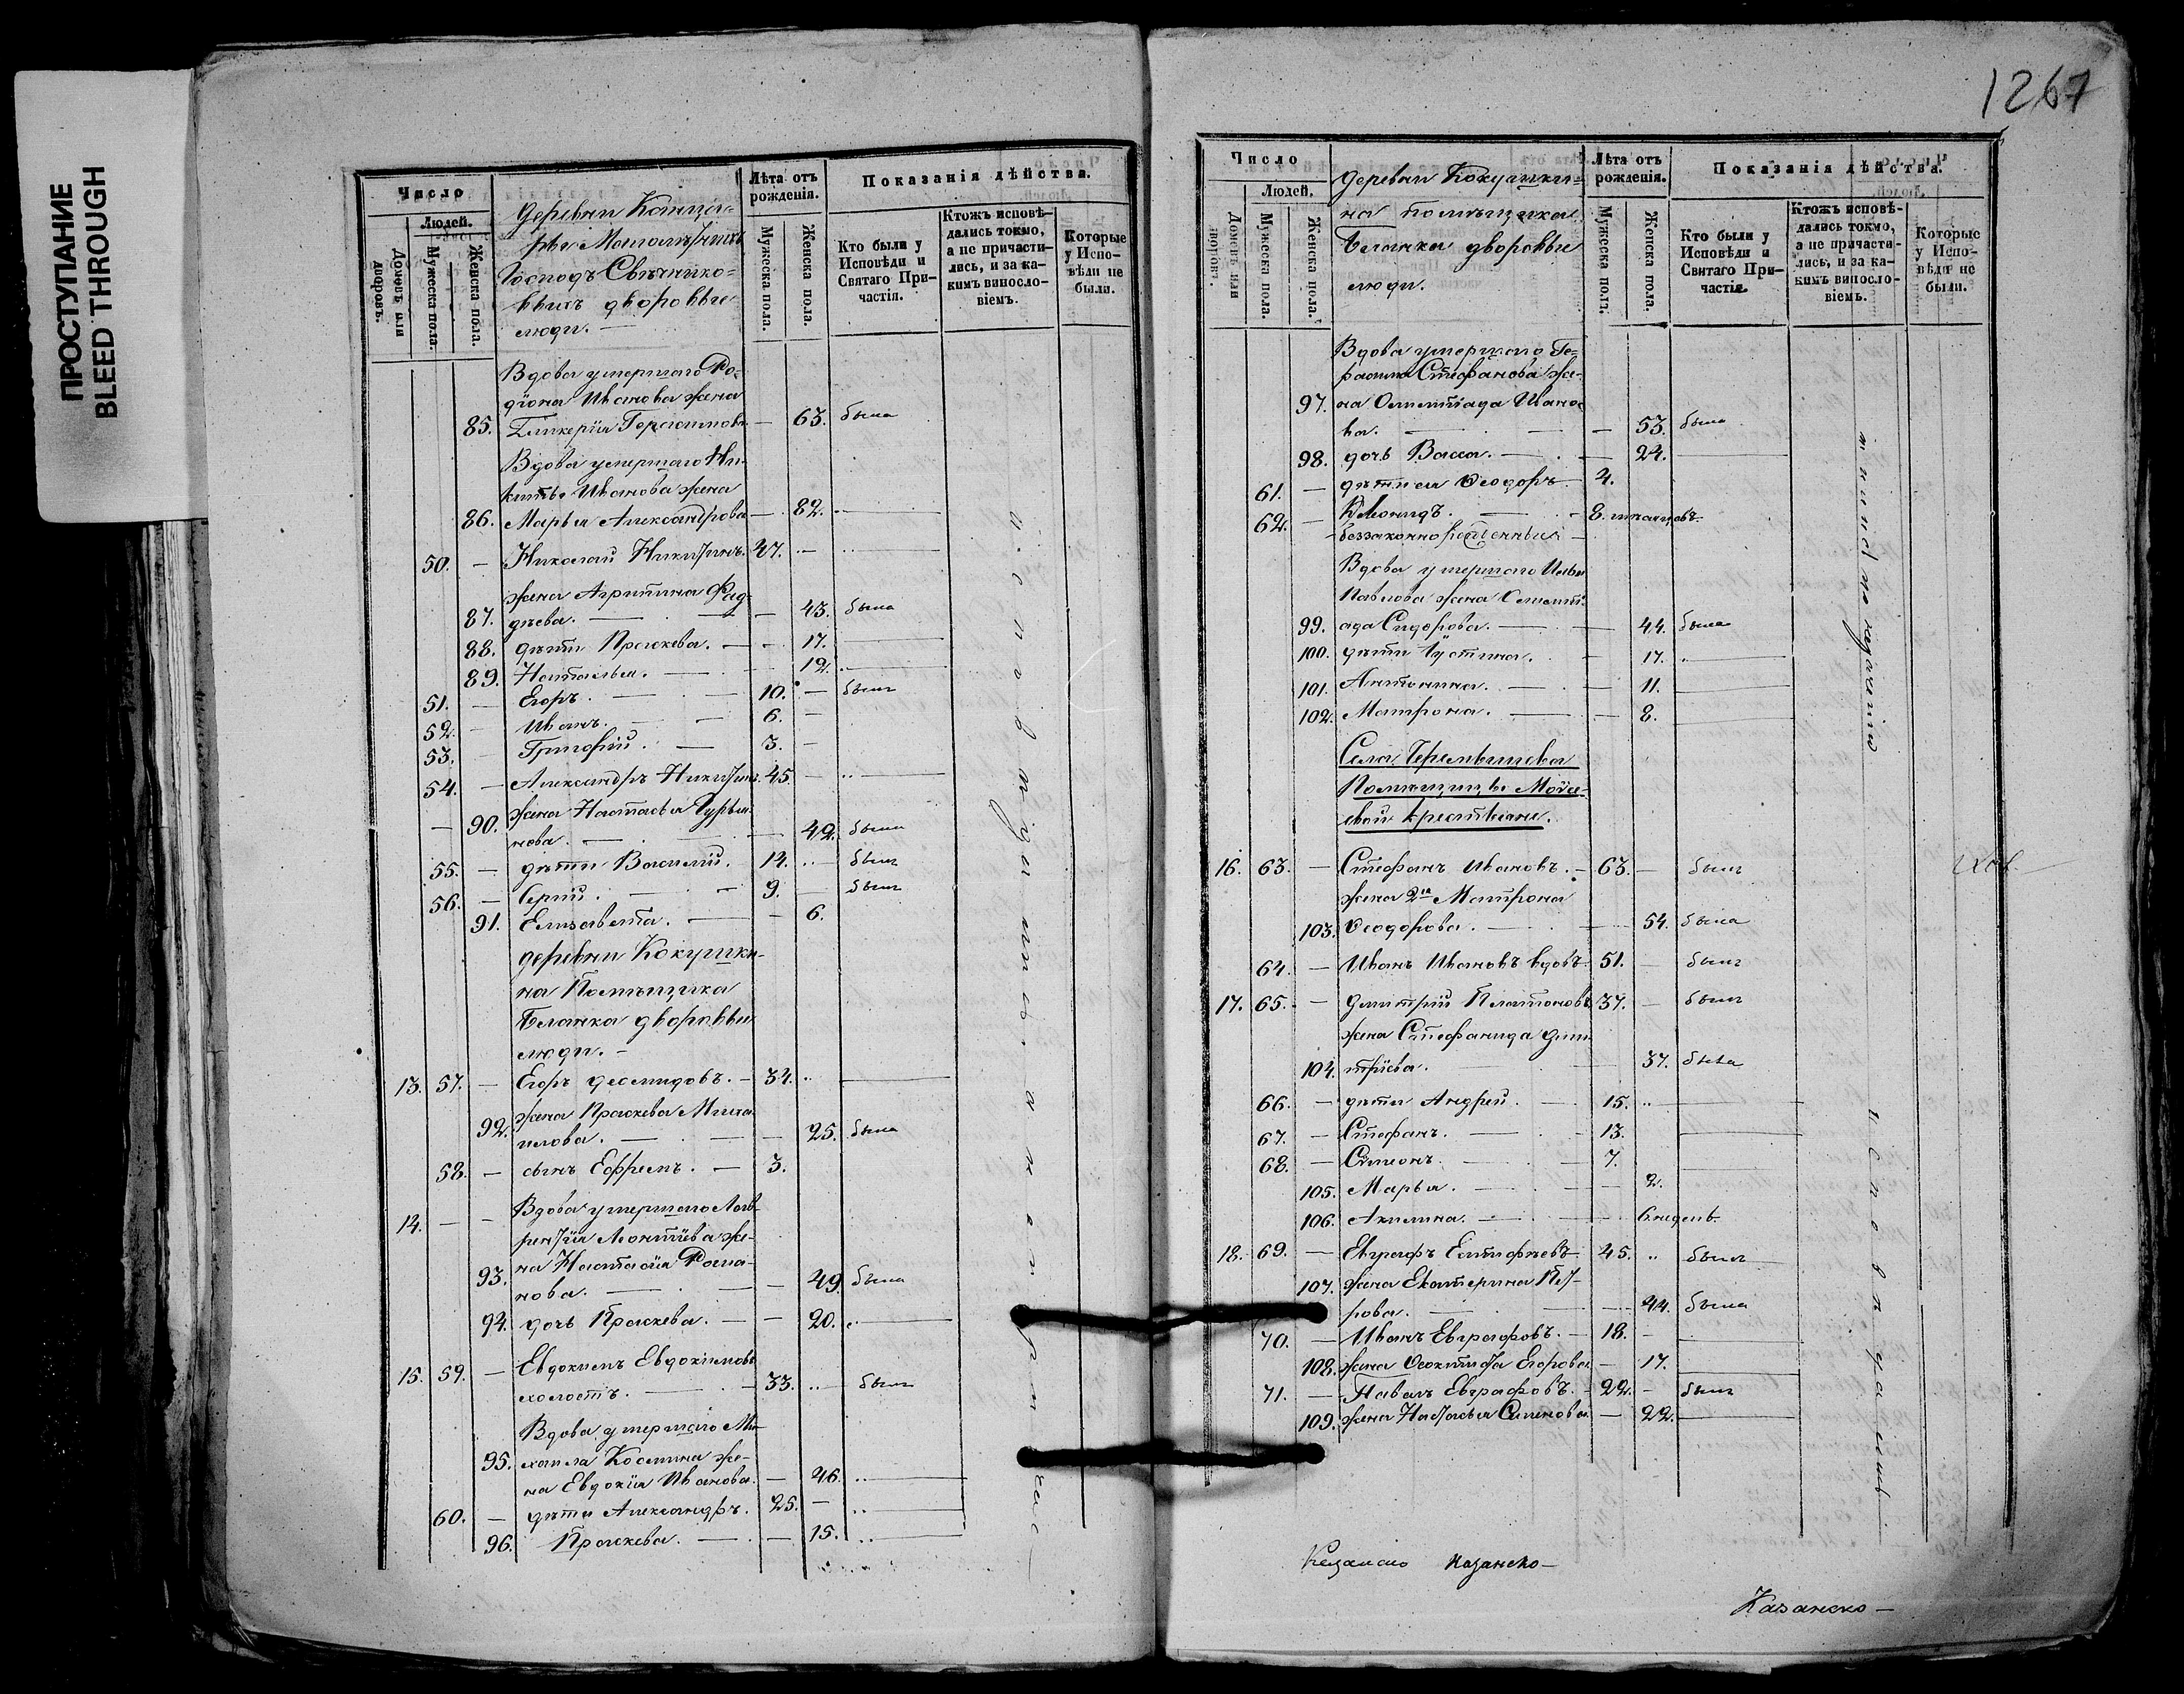 ПРОСТУПАНИЕ
BLEED THROUGH
Число
Людей.
Домовъ или дворовъ.
Мужеска пола.
Женска пола.
Лѣта отъ рожденія.
Мужеска пола.
Женска пола.
Показанія дѣйства.
Кто были у Исповѣди и Святаго Причастія.
Ктожъ исповѣдались токмо, а не причастились, и за какимъ винословіемъ.
Которые у Исповѣди не были.
деревни
Господъ
дворовые
люди. —
Вдова умершаго Ро-
діона Иванова жена
85. Гликерія Герасимова — 63. была
Вдова умершаго Ни-
киты Иванова жена
86. Марья Александрова — 82.
50. — Николай Никитинъ. 47. —
жена Агрипина Фад-
87. дѣева. — 43. была
88. дѣти Прасковья. — 17.
89. Наталья. — 12.
51. — Егоръ. — 10. — былъ
52. — Иванъ. — 6. —
53. — Григорій. — 3. —
54. — Александръ Никитинъ. 45. —
— 90. жена Настасья Гурья-
нова. — 42. была
55. — дѣти Василій. 14. — былъ
56. — Сергій. — 9. — былъ
91. Елизавета. — 6.
деревни Кокушки-
на Помѣщика
Бланка дворовые
люди. —
13. 57. — Егоръ Деомидовъ. — 34.
92. жена Прасковья Михаи-
лова. — 25. была
58. — сынъ Ефремъ. — 3.
14. — — Вдова умершаго Лав-
рентія Леонтіева же-
93. на Настасія Рома-
нова. — 49. была
94. дочь Прасковья. — 20.
15. 59. — Евдокимъ Евдокимовъ
холостъ. — 33. былъ
Вдова умершаго Ми-
95. хаила Космина же-
на Евдокія Иванова. — 46.
60. — дѣти Александръ. 25. —
96. Прасковья. — 15.
1267
Число
Людей.
Домовъ или дворовъ.
Мужеска пола.
Женска пола.
деревни Кокушки-
на помѣщика
Бланка дворовые
люди.
Лѣта отъ рожденія.
Мужеска пола.
Женска пола.
Показанія дѣйства.
Кто были у Исповѣди и Святаго Причастія.
Ктожъ исповѣдались токмо, а не причастились, и за какимъ винословіемъ.
Которые у Исповѣди не были.
Вдова умершаго Ге-
расима Стефанова же-
97. на Олимпіада Ивано-
ва. — 53. была
98. дочь Васса. — 24.
61. — дѣти ея Ѳеодоръ 4.
62. — Леонидъ. — 8. мѣсяцовъ
беззаконнорожденныя —
Вдова умершаго Ильи
Павлова жена Олимпі-
99. ада Сидорова. — 44. была
100. дѣти Іустина. 17.
101. Антонина. — 11.
102. Матрона. — 8.
Села Черемышева
Помѣщицы
крестьяне.
16. 63. — Стефанъ Ивановъ. — 63. — былъ
жена 2я Матрона
103. Ѳеодорова. — 54. была
64. — Иванъ Ивановъ вдовъ 51. — былъ
17. 65. — Дмитрій Платоновъ 37. — былъ
жена Стефанида Дми-
104. тріева. — 37. была
66. — дѣти Андрей. — 15.
67. — Стефанъ. — 13.
68. — Симеонъ. — 7.
105. Марья. — 2.
106. Акилина. — 6. недель
18. 69. — Евграфъ Евтифѣевъ 45. былъ
107. жена Екатерина Пет-
рова. — 44. была
70. — Иванъ Евграфовъ. — 18. —
108. жена Ѳеоктиста Егорова — 17.
71. — Павелъ Евграфовъ. — 22. — былъ
109. жена Настасья Симонова — 22.
исповѣдались
Казанско —
Казанско —